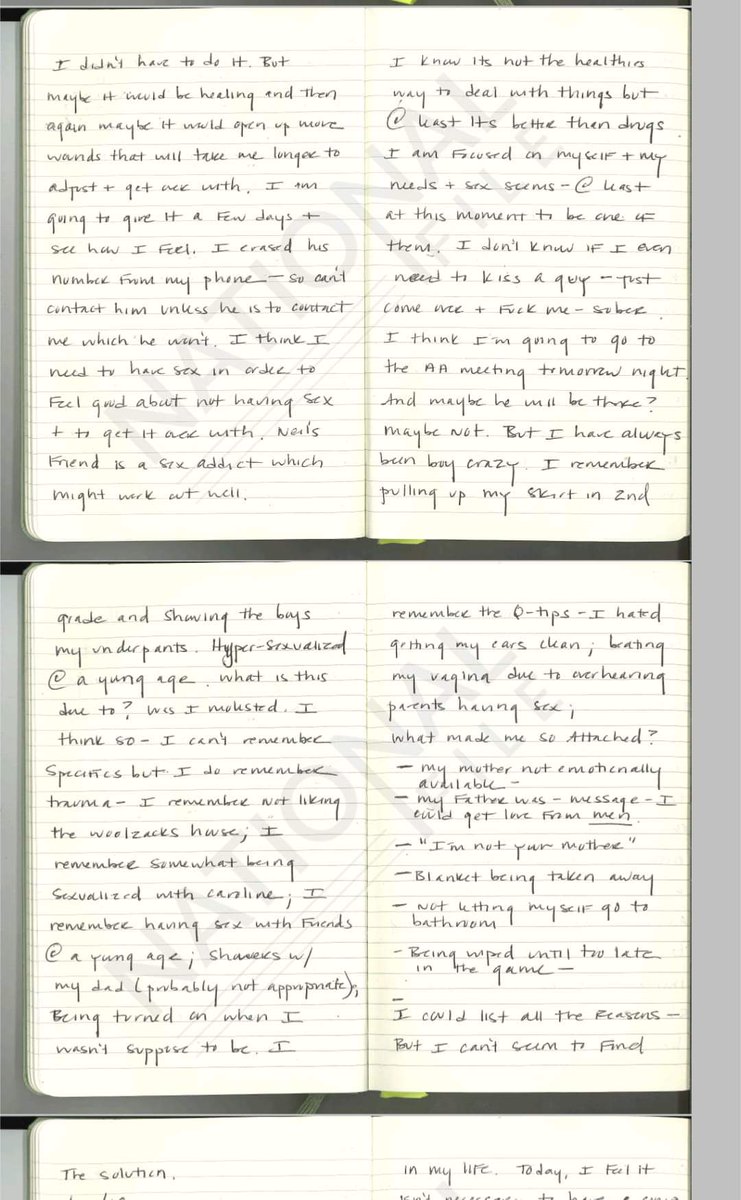 I didn't have to do it. But
maybe it would be healing and then
again maybe it would open up more
wounds that will take me longer to
adjust + get over with. I am
going to give it a few days +
see how I feel. I erased his
number from my phone - so can't
contact him unless he is to contact
me which he won't. I think I
need to have sex in order to
feel good about not having sex
+ to get it over with. Neil's
friend is a sex addict which
might work out well.
I know its not the healthies
way to deal with things but
@ least its better than drugs.
I am focused on myself + my
needs + sex seems - @ least
at this moment to be one of
them. I don't know if I even
need to kiss a guy - just
come over + fuck me - sober.
I think I'm going to go to
the AA meeting tomorrow night.
And maybe he will be there?
maybe not. But I have always
been boy crazy. I remember
pulling up my skirt in 2nd
grade and showing the boys
my underpants. Hyper-sexualized
@ a young age. what is this
due to? Was I molested. I
think so - I can't remember
specifics but I do remember
trauma - I remember not liking
the woolzacks house; I
remember somewhat being
sexualized with caroline; I
remember having sex with friends
@ a young age; showers w/
my dad (probably not appropriate);
Being turned on when I
wasn't suppose to be. I
remember the Q-tips - I hated
getting my ears clean; beating
my vagina due to overhearing
parents having sex;
what made me so attached?
- my mother not emotionally
available -
- my father was - message - I
could get love from men.
- "I'm not your mother"
- Blanket being taken away
- not letting myself go to
bathroom
- Being wiped until too late
in the game -
-
I could list all the reasons -
But I can't seem to find
The solution.
in my life. Today, I feel it
NATIONAL
FILE
NATIONAL
FILE